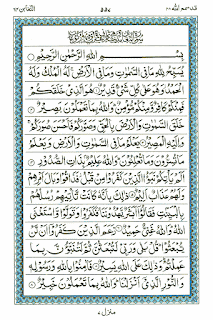 قد سمع الله ٢٨
التغابن ٦٤
بِسْمِ اللهِ الرَّحْمٰنِ الرَّحِيْمِ
يُسَبِّحُ لِلّٰهِ مَا فِي السَّمٰوٰتِ وَمَا فِي الْاَرْضِ لَهُ الْمُلْكُ وَلَهُ
الْحَمْدُ وَهُوَ عَلٰى كُلِّ شَيْءٍ قَدِيْرٌ هُوَ الَّذِيْ خَلَقَكُمْ
فَمِنْكُمْ كَافِرٌ وَّمِنْكُمْ مُّؤْمِنٌ وَاللهُ بِمَا تَعْمَلُوْنَ بَصِيْرٌ
خَلَقَ السَّمٰوٰتِ وَالْاَرْضَ بِالْحَقِّ وَصَوَّرَكُمْ فَاَحْسَنَ صُوَرَكُمْ
وَاِلَيْهِ الْمَصِيْرُ يَعْلَمُ مَا فِي السَّمٰوٰتِ وَالْاَرْضِ وَيَعْلَمُ مَا
تُسِرُّوْنَ وَمَا تُعْلِنُوْنَ وَاللهُ عَلِيْمٌ بِذَاتِ الصُّدُوْرِ اَلَمْ
يَاْتِكُمْ نَبَؤُا الَّذِيْنَ كَفَرُوْا مِنْ قَبْلُ فَذَاقُوْا وَبَالَ اَمْرِهِمْ
وَلَهُمْ عَذَابٌ اَلِيْمٌ ذٰلِكَ بِاَنَّهٗ كَانَتْ تَّاْتِيْهِمْ رُسُلُهُمْ
بِالْبَيِّنٰتِ فَقَالُوْا اَبَشَرٌ يَّهْدُوْنَنَا فَكَفَرُوْا وَتَوَلَّوْا وَّاسْتَغْنَى
اللهُ وَاللهُ غَنِيٌّ حَمِيْدٌ زَعَمَ الَّذِيْنَ كَفَرُوْا اَنْ لَّنْ
يُّبْعَثُوْا قُلْ بَلٰى وَرَبِّيْ لَتُبْعَثُنَّ ثُمَّ لَتُنَبَّؤُنَّ بِمَا
عَمِلْتُمْ وَذٰلِكَ عَلَى اللهِ يَسِيْرٌ فَاٰمِنُوْا بِاللهِ وَرَسُوْلِهٖ
وَالنُّوْرِ الَّذِيْ اَنْزَلْنَا وَاللهُ بِمَا تَعْمَلُوْنَ خَبِيْرٌ
منزل ٧